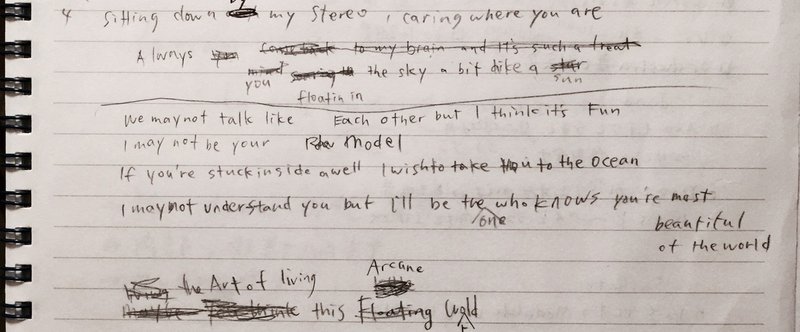 4 Sitting down by my Stereo , caring where you are
Always you comes back to my brain and it's such a treat
mind you soaring to the sky a bit dike a star
floatin in sun
We may not talk like Each other but I think it's Fun
I may not be your Role Model
If you're stuck inside a well I wish to take You to the Ocean
I may not understand you but I'll be the one who knows you're most
beautiful
of the world
Arcane
the Art of living
this Floating World